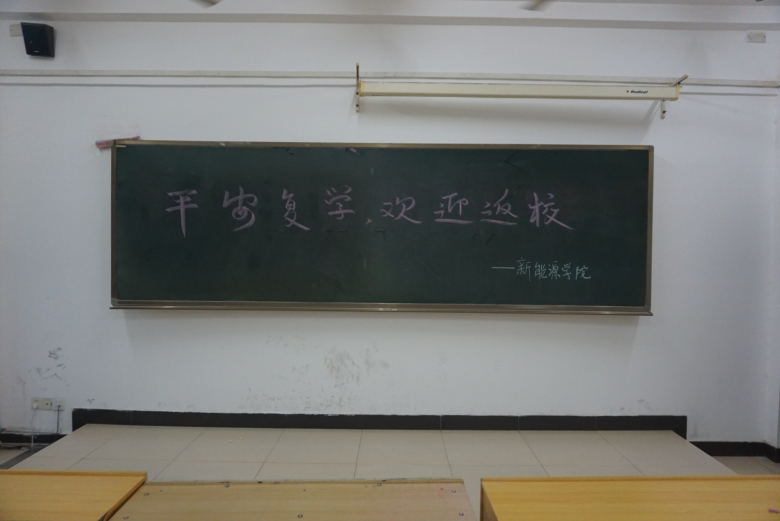 平安复学,欢迎返校
——新能源学院